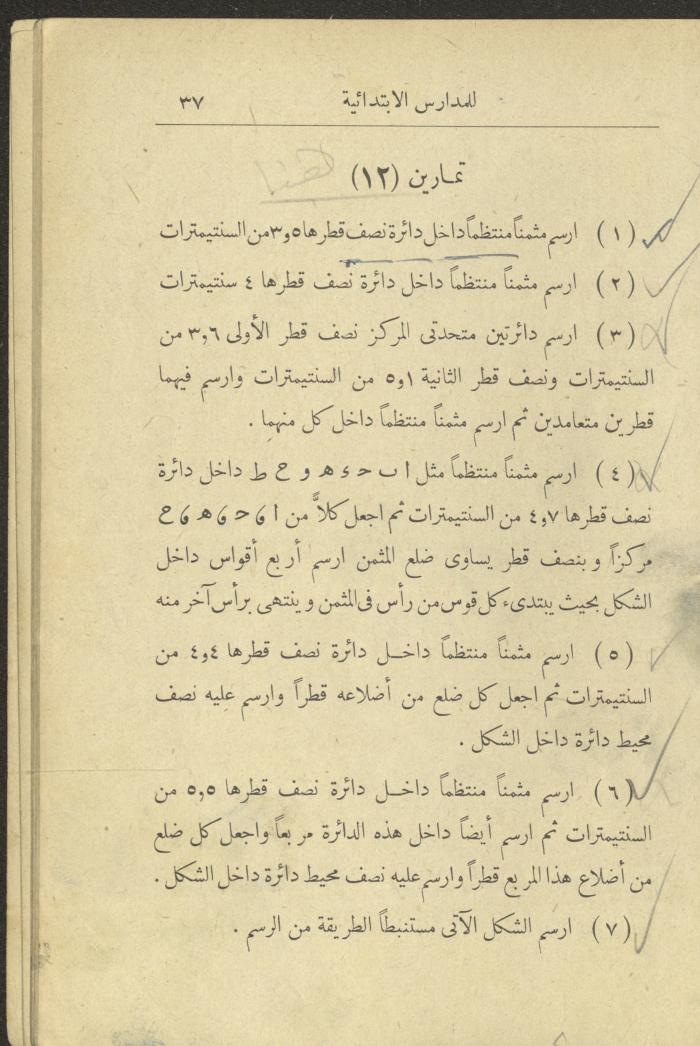 للمدارس الابتدائية ٣٧
هنا
تمارين (١٢)
(١) ارسم مثمناً منتظماً داخل دائرة نصف قطرها ٣٫٥ من السنتيمترات
(٢) ارسم مثمناً منتظماً داخل دائرة نصف قطرها ٤ سنتيمترات
(٣) ارسم دائرتين متحدتى المركز نصف قطر الأولى ٣٫٦ من
السنتيمترات ونصف قطر الثانية ٥٫١ من السنتيمترات وارسم فيهما
قطرين متعامدين ثم ارسم مثمناً منتظماً داخل كل منهما .
(٤) ارسم مثمناً منتظماً مثل ا ب ح ء ه و ح ط داخل دائرة
نصف قطرها ٤٫٧ من السنتيمترات ثم اجعل كلاًّ من ا ى ح ى ه ى ح
مركزاً وبنصف قطر يساوى ضلع المثمن ارسم أربع أقواس داخل
الشكل بحيث يبتدىء كل قوس من رأس فى المثمن وينتهى برأس آخر منه
(٥) ارسم مثمناً منتظماً داخل دائرة نصف قطرها ٤٫٤ من
السنتيمترات ثم اجعل كل ضلع من أضلاعه قطراً وارسم عليه نصف
محيط دائرة داخل الشكل .
(٦) ارسم مثمناً منتظماً داخل دائرة نصف قطرها ٥٫٥ من
السنتيمترات ثم ارسم أيضاً داخل هذه الدائرة مربعاً واجعل كل ضلع
من أضلاع هذا المربع قطراً وارسم عليه نصف محيط دائرة داخل الشكل .
(٧) ارسم الشكل الآتى مستنبطاً الطريقة من الرسم .